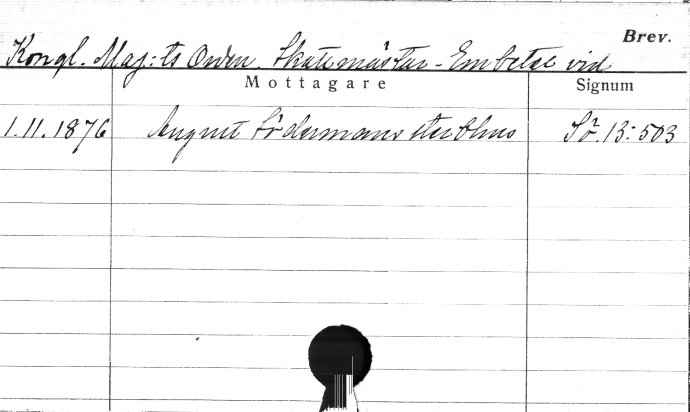 Brev.
Kongl. Maj:ts Orden. Skattmästar-Embetet vid
Mottagare Signum
1.11.1876 August Södermans sterbhus Sö. 13:503